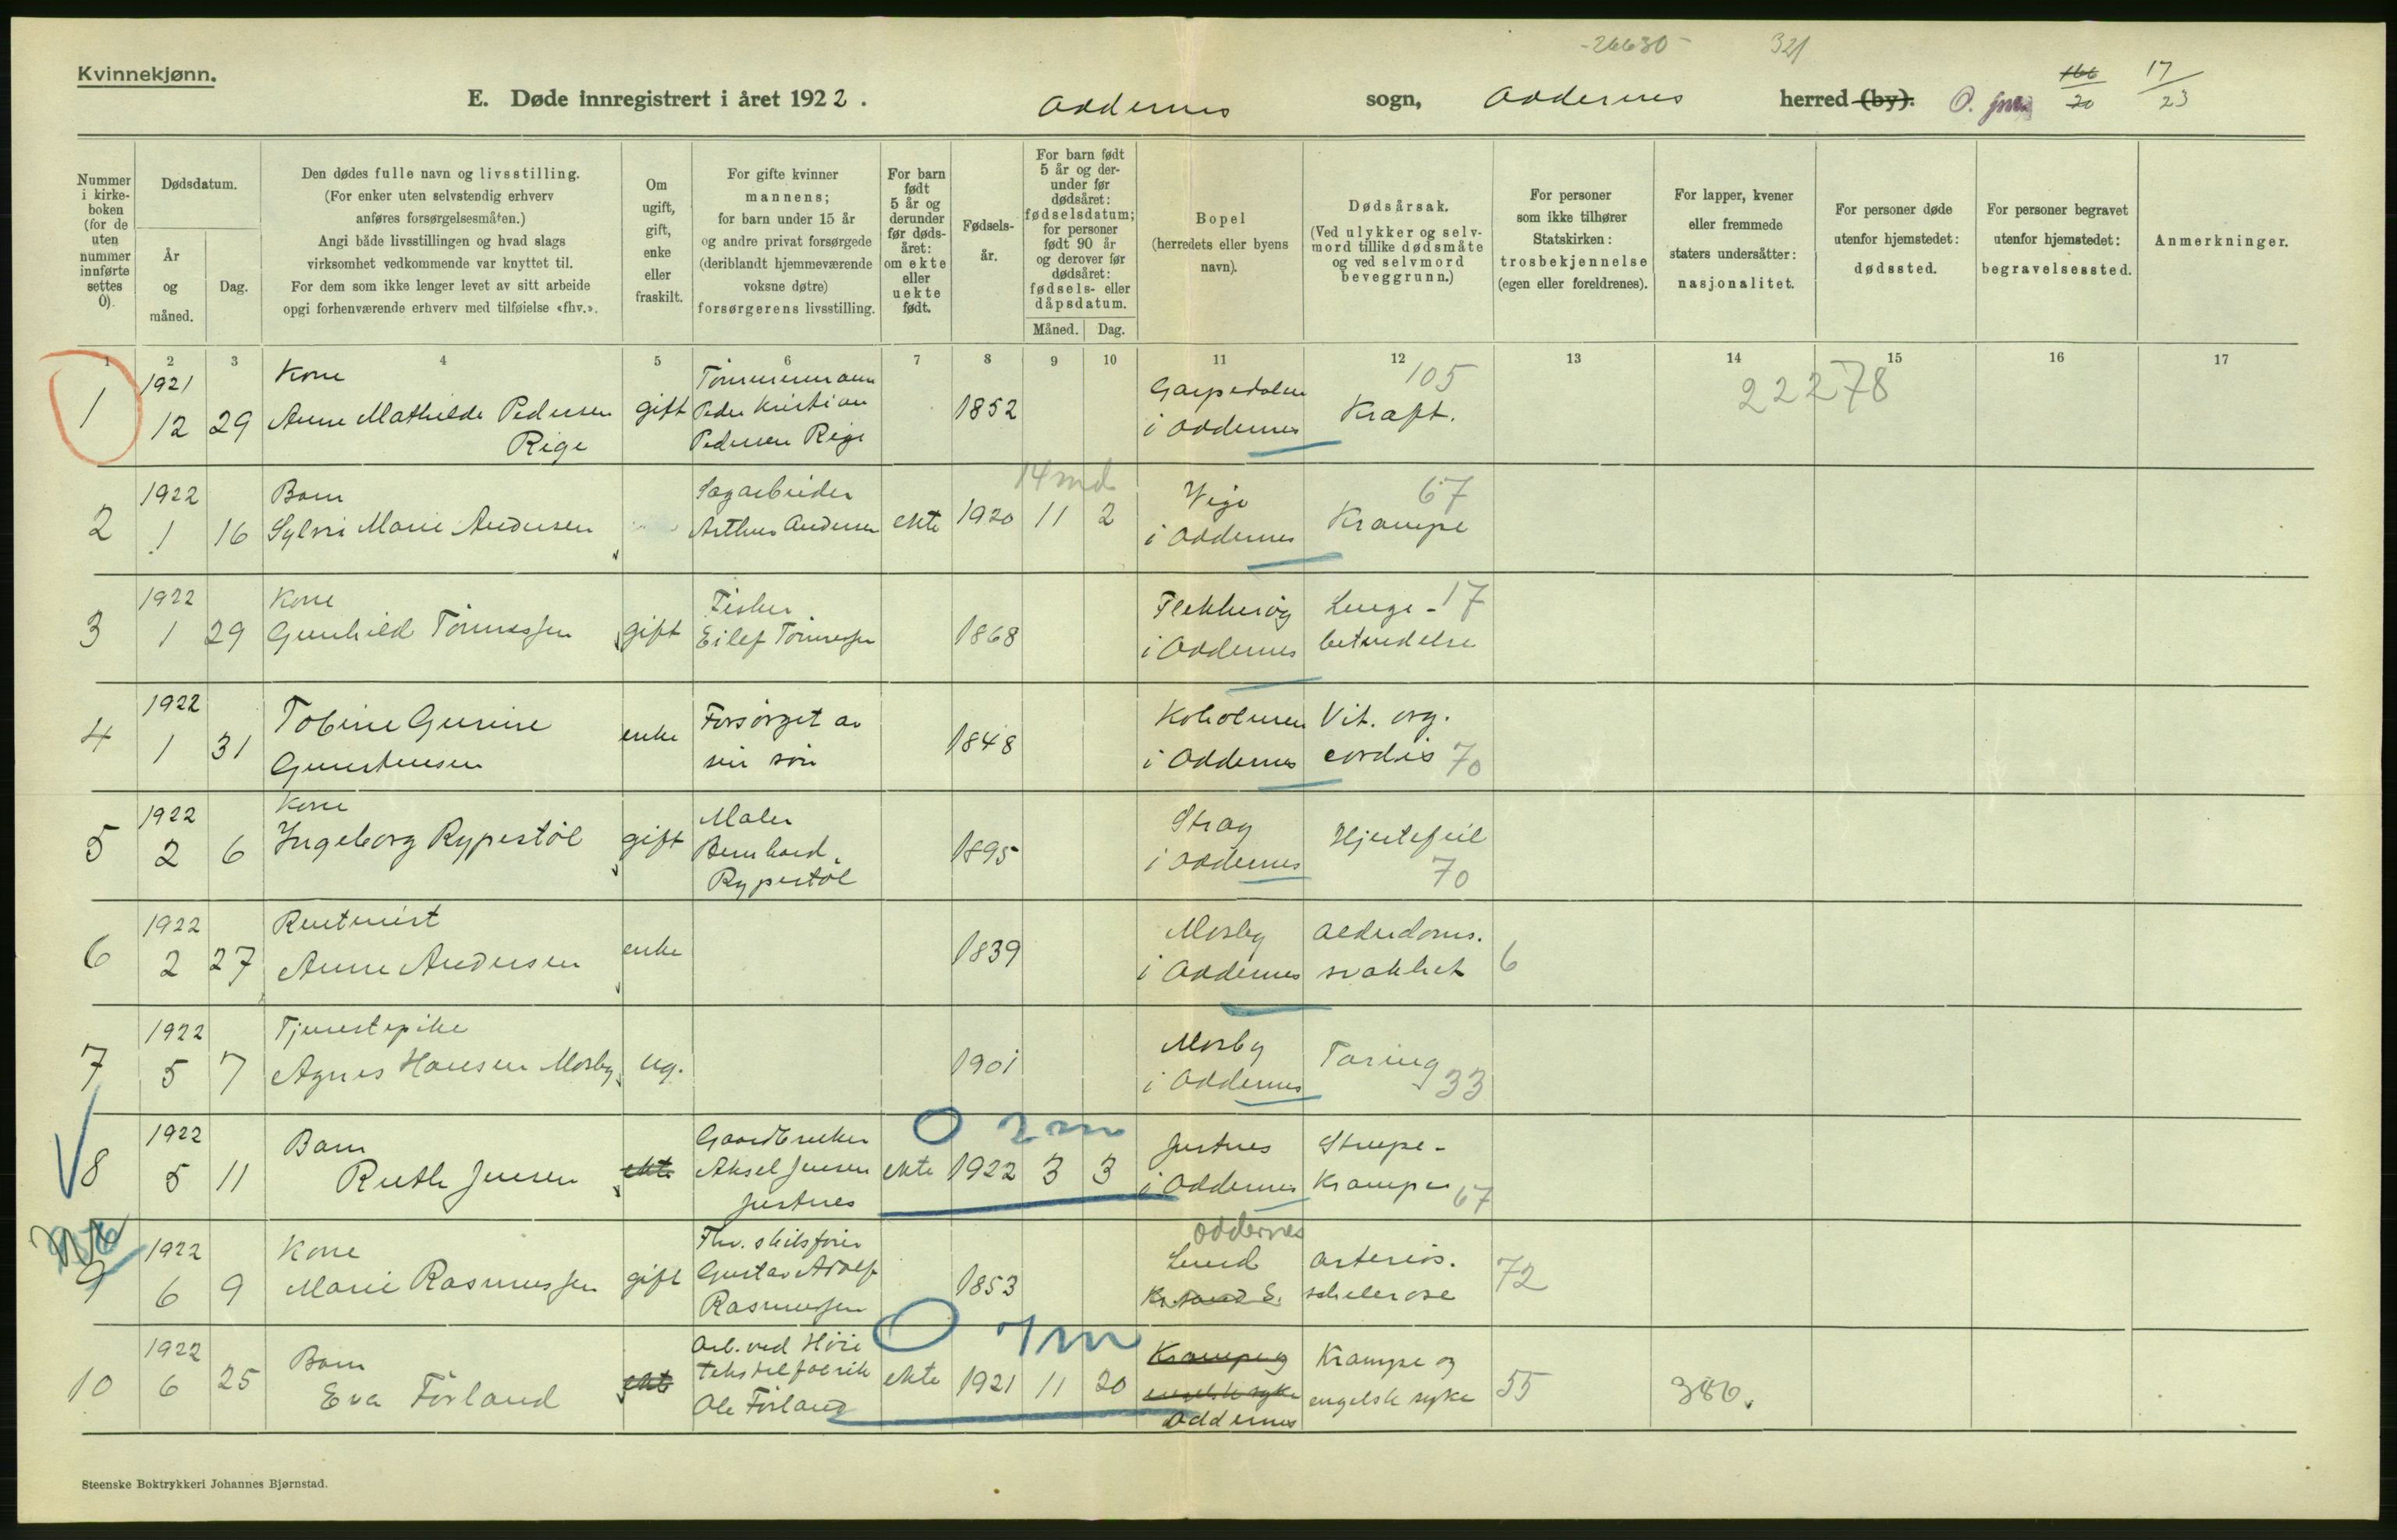 -26630-
321
Kvinnekjønn.
E. Døde innregistrert i året 1922. Oddernes sogn, Oddernes herred (by).
166
20
17
23
Nummer i kirke-boken (for de uten nummer innførte settes 0).
Dødsdatum.
År og måned.
Dag.
Den dødes fulle navn og livsstilling.
(For enker uten selvstendig erhverv
anføres forsørgelsesmåten.)
Angi både livsstillingen og hvad slags
virksomhet vedkommende var knyttet til.
For dem som ikke lenger levet av sitt arbeide
opgi forhenværende erhverv med tilføielse «fhv.».
Om ugift, gift, enke eller fraskilt.
For gifte kvinner
mannens;
for barn under 15 år
og andre privat forsørgede
(deriblandt hjemmeværende
voksne døtre)
forsørgerens livsstilling.
For barn født 5 år og derunder før døds-året: om ekte eller uekte født.
Fødsels-år.
For barn født
5 år og der-
under før
dødsåret:
fødselsdatum;
for personer
født 90 år
og derover før
dødsåret:
fødsels- eller
dåpsdatum.
Måned. Dag.
Bopel
(herredets eller byens
navn).
Dødsårsak.
(Ved ulykker og selv-
mord tillike dødsmåte
og ved selvmord
beveggrunn.)
For personer
som ikke tilhører
Statskirken:
trosbekjennelse
(egen eller foreldrenes).
For lapper, kvener
eller fremmede
staters undersåtter:
nasjonalitet.
For personer døde
utenfor hjemstedet:
dødssted.
For personer begravet
utenfor hjemstedet:
begravelsessted.
Anmerkninger.
1 2 3 4 5 6 7 8 9 10 11 12 13 14 15 16 17
1921 Kone Tømmermann 105 22278
1 12 29 Anne Mathilde Pedersen gift Peder Kristian 1852 i Oddernes Kræft.
Rige Pedersen Rige
1922 Barn Sagarbeider 14 md Vige 67
2 1 16 Sylvi Marie Andersen Arthur Andersen ekte 1920 11 2 i Oddernes Krampe
1922 Kone Fisker Flekkerøy Lunge- 17
3 1 29 Gunhild Tønnessen gift Eilef Tønnessen 1868 i Oddernes betendelse
1922 Tobine Gurine Forsørget av Koholmen Vit. org.
4 1 31 Gunstensen enke sin søn 1848 i Oddernes cordis 70
1922 Kone Maler Strag Hjertefeil
5 2 6 Ingeborg Rypestøl gift Bernhard 1895 i Oddernes 70
Rypestøl
1922 Rentenist Mosby Alderdoms.
6 2 27 Anne Andersen enke 1839 i Oddernes svakhet 6
1922 Tjenestepike Mosby Tæring
7 5 7 Agnes Hansen Mosby ug. 1901 i Oddernes 33
1922 Barn Gaardbruker 0 2 m Justnes Strupe-
8 5 11 Ruth Jensen ekte Aksel Jensen ekte 1922 3 3 i Oddernes Krampe 67
Justnes
Oddernes
1922 Kone Fhv. skibsfører Lund arterios.
9 6 9 Marie Rasmussen gift Gustav Adolf 1853 Kr.sand S. schelerose 72
Rasmussen
1922 Barn Arb. ved Høie 0 7 m Krampe og Krampe og
10 6 25 Eva Førland ekte tekstilfabrik ekte 1921 11 20 engelsk syke engelsk syke 55 386.
Ole Førland Oddernes
Steenske Boktrykkeri Johannes Bjørnstad.